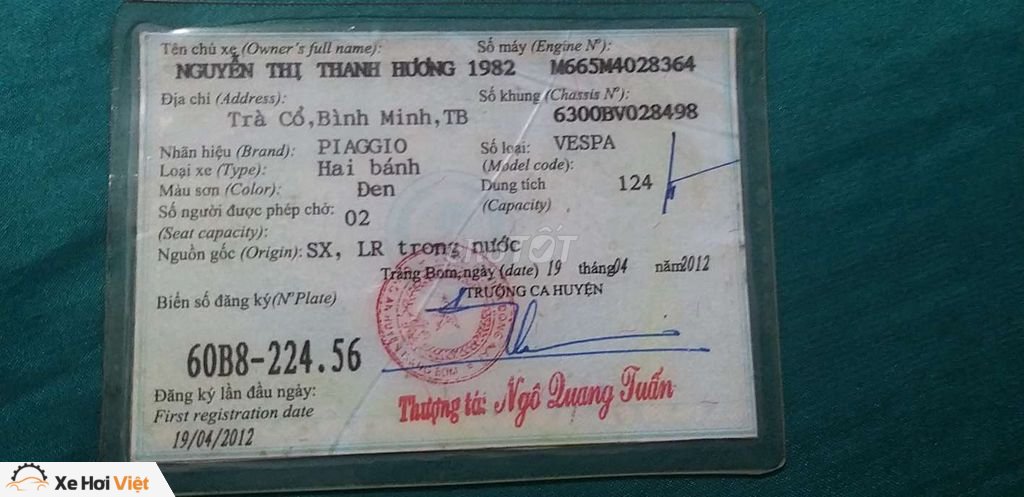 Tên chủ xe (Owner's full name):
NGUYỄN THỊ THANH HƯƠNG 1982
Số máy (Engine Nº):
M665M4028364
Địa chỉ (Address):
Trà Cổ,Bình Minh,TB
Số khung (Chassis Nº):
6300BV028498
Nhãn hiệu (Brand): PIAGGIO
Số loại: VESPA
(Model code):
Loại xe (Type): Hai bánh
Màu sơn (Color): Đen
Dung tích 124
(Capacity)
Số người được phép chở: 02
(Seat capacity):
Nguồn gốc (Origin): SX, LR trong nước
Trảng Bom, ngày (date) 19 tháng 04 năm 2012
TRƯỞNG CA HUYỆN
Biển số đăng ký(NºPlate)
60B8-224.56
Đăng ký lần đầu ngày:
First registration date
19/04/2012
Thượng tá: Ngô Quang Tuấn
Xe Hơi Việt